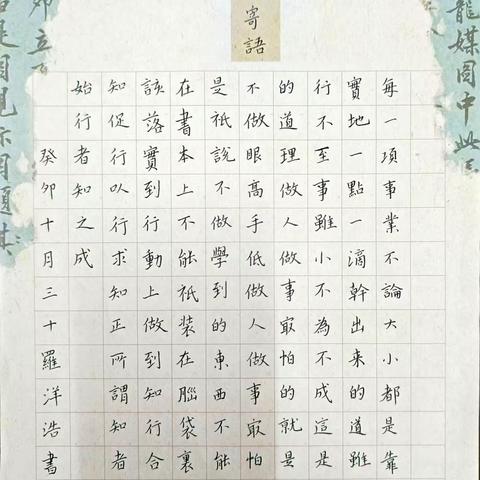 寄語
每一項事業不論大小都是靠
實地一點一滴幹出来的道雖
行不至事雖小不為不成這是
的道理做人做事冣怕的就是
不做眼高手低做人做事冣怕
是祇說不做學到的東西不能
在書本上不能祇裝在腦袋裏
該落實到行動上做到知行合
知促行以行求知正所謂知者
始行者知之成
癸卯十月三十羅洋浩書